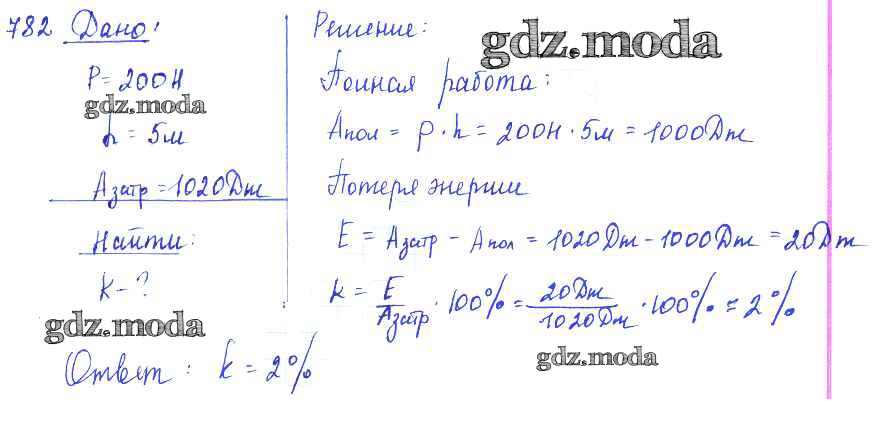 782 Дано:
P = 200Н
gdz.moda
h = 5м
Aзатр = 1020Дж
Найти:
k - ?
gdz.moda
Решение:
gdz.moda
Полная работа:
Aпол = P · h = 200Н · 5м = 1000Дж
Потеря энергии
E = Aзатр - Aпол = 1020Дж - 1000Дж = 20Дж
k = E/Aзатр · 100% = 20Дж/1020Дж · 100% ≈ 2%
gdz.moda
Ответ: k = 2%